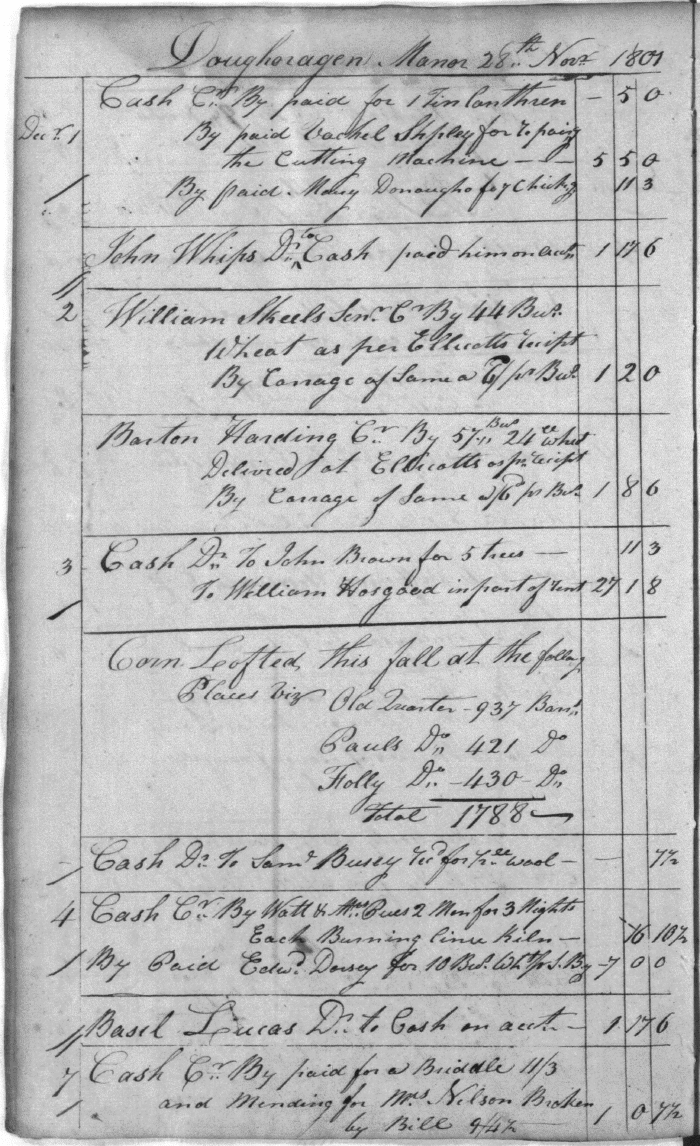 Doughoragen Manor 28th Novr 1801
Cash Cr By paid for 1 Tin lanthren — 5 0
Decr 1 By paid Vachel Shpley for repaing
the Cutting Machine — — 5 5 0
By paid Mary Donaugho for Chickg 11 3
John Whips Dr to Cash paid him on acctt 1 17 6
2 William Skeels Senr Cr By 44 Bus.
Wheat as per Ellicotts recipt
By Carrage of Same a 6/ pr Bus. 1 2 0
Barton Harding Cr By 57 Bus 24 lb Wheat
Delivred at Ellicotts as pr recipt
By Carrage of Same a /6 pr Bus. 1 8 6
3 Cash Dr To John Brown for 5 trees — 11 3
To William Hosgood in part of rent 27 1 8
Corn Lofted this fall at the follog
Places viz Old Quarter - 937 Barrs.
Pauls Do 421 Do
Folly Do - 430 - Do
Total 1788
Cash Dr To Saml Busey for wool — — 7½
4 Cash Cr By Watt & Pues 2 Men for 3 Nights
Each Burning lime Kiln — 16 10½
By Paid Edwd Dorsey for 10 Bus. - 7 0 0
Basil Lucas Dr to Cash on acctt — 1 17 6
7 Cash Cr By paid for a Briddle 11/3
and Mending for Mrs Nelson Broken
by Bill 9/4½ 1 0 7½